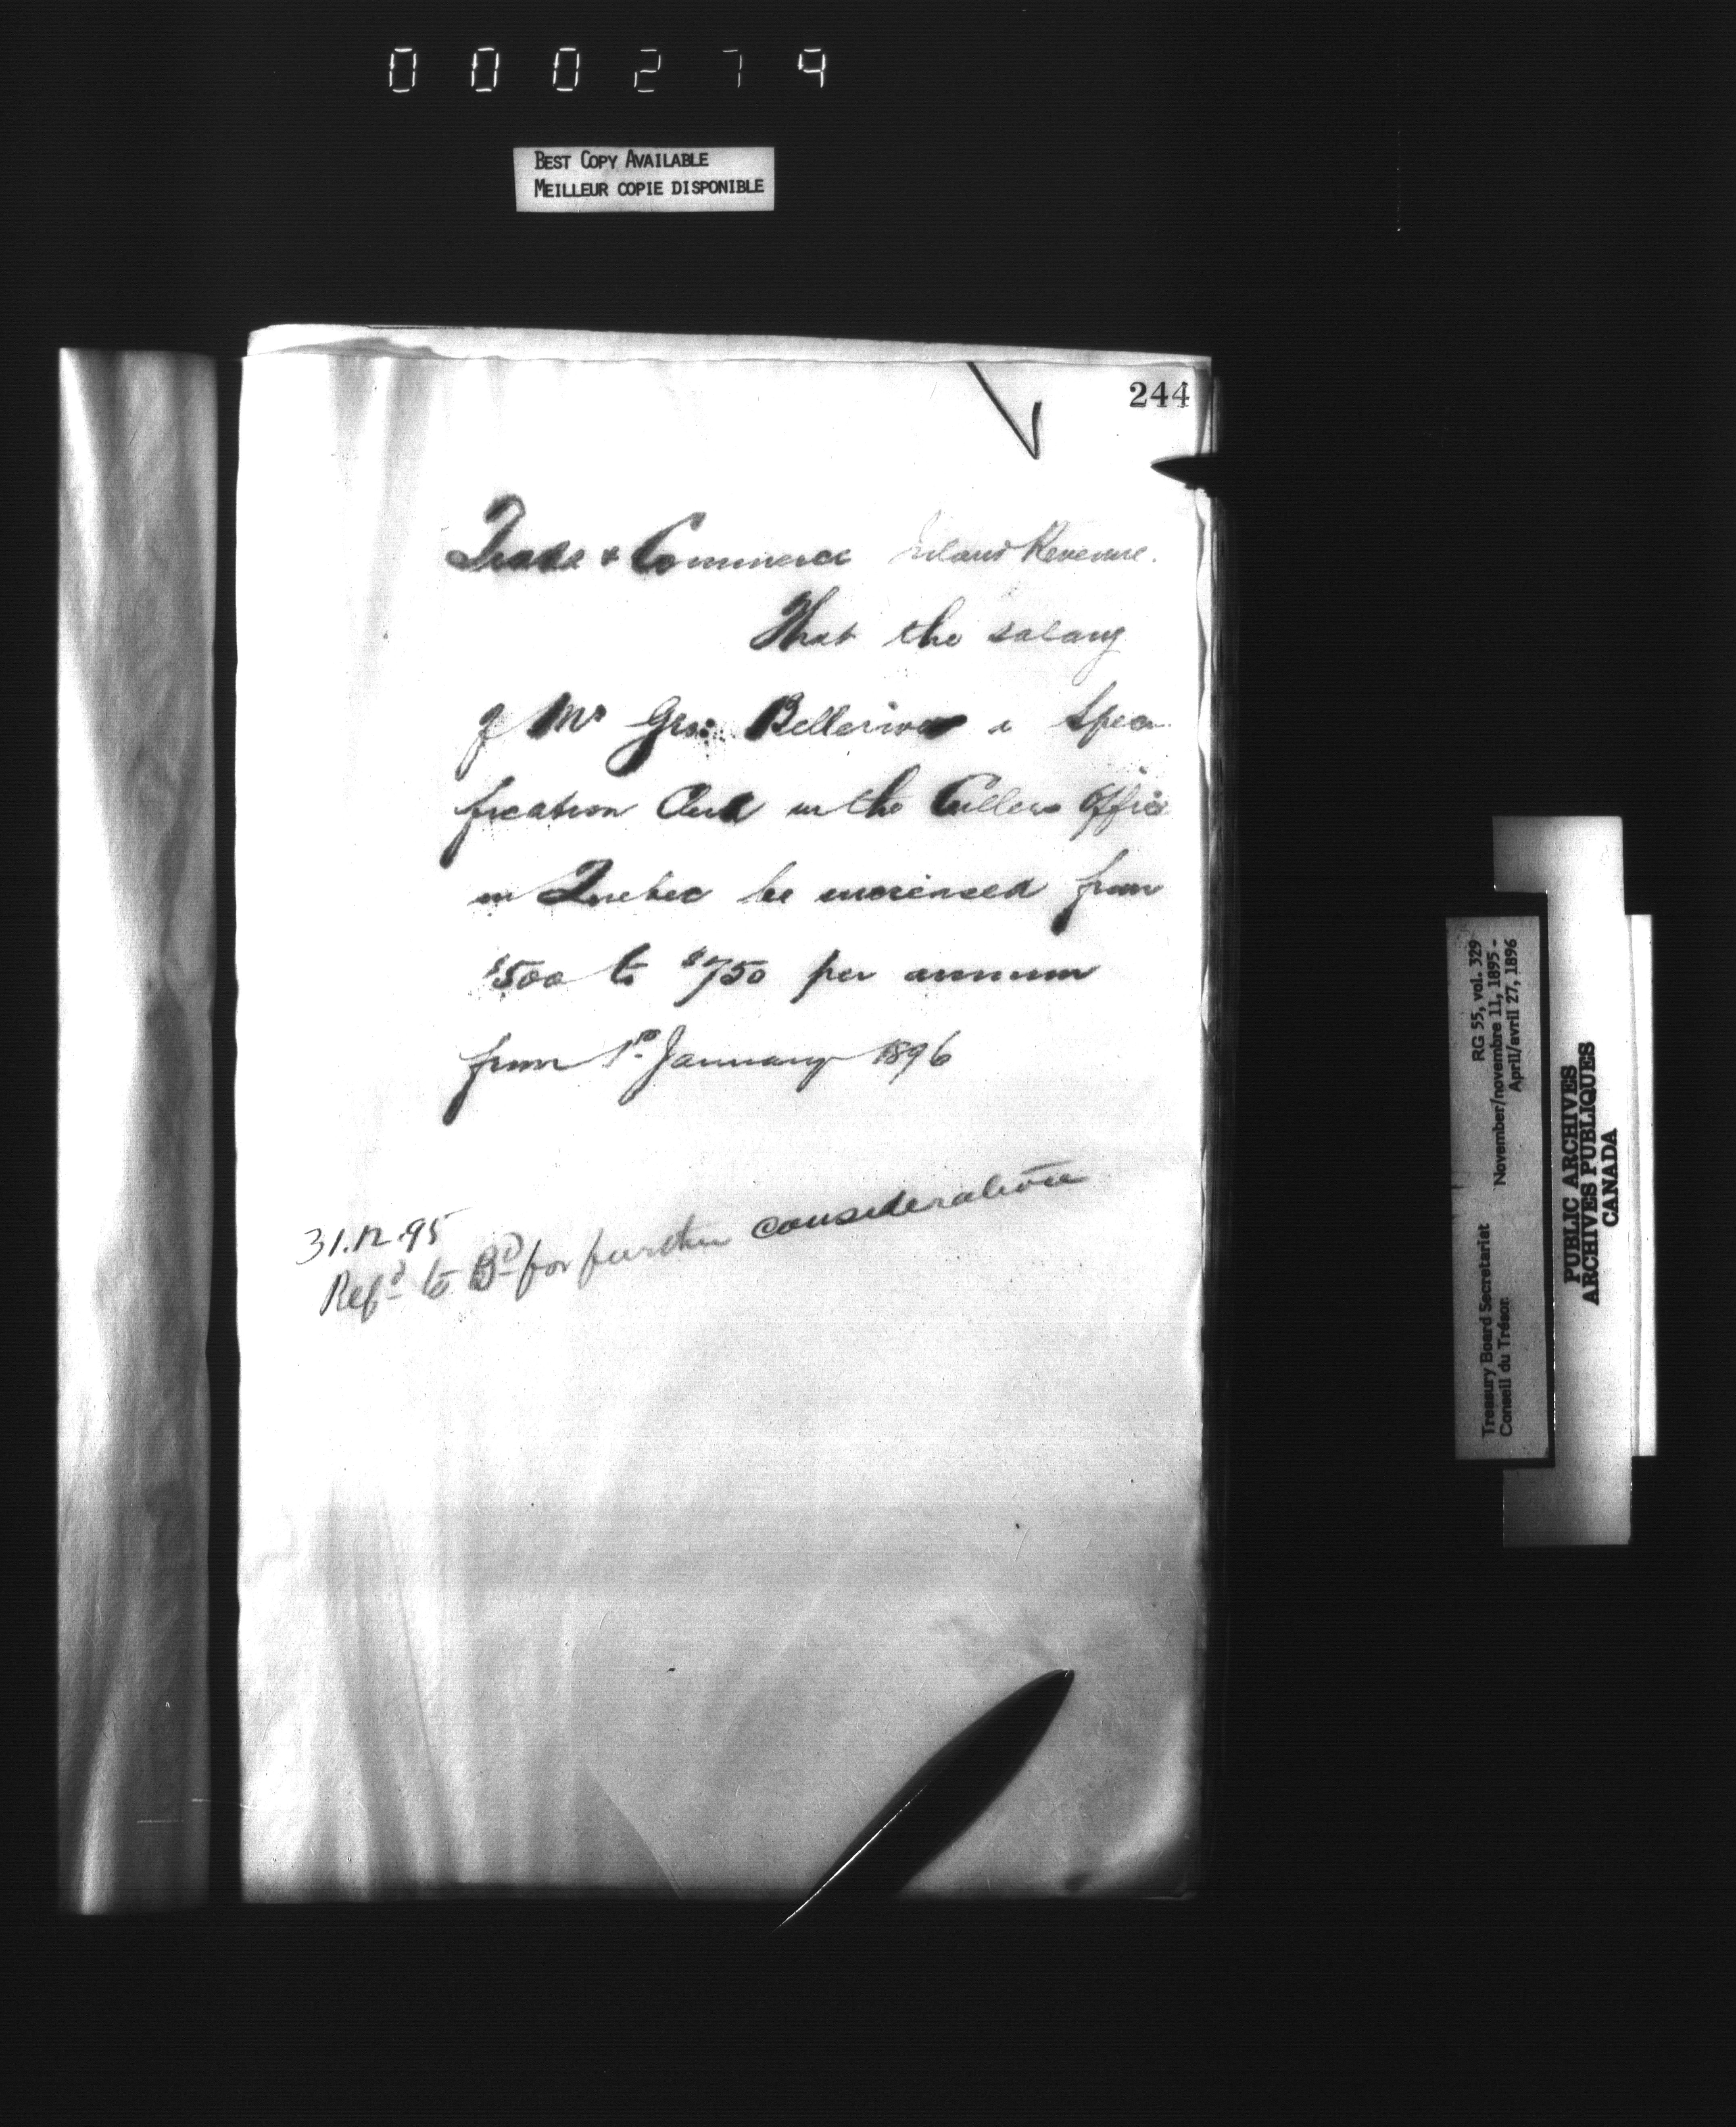 000279
BEST COPY AVAILABLE
MEILLEUR COPIE DISPONIBLE
244
Trade & Commerce Inland Revenue.
That the salary
of Mr Geo: Bellerive a Speci
fication Clerk in the Cullers Office
in Quebec be increased from
$500 to $750 per annum
from 1st January 1896
31.12.95
Refd to Bd for further consideration
Treasury Board Secretariat RG 55, vol. 329
Conseil du Trésor November/novembre 11, 1895 -
April/avril 27, 1896
PUBLIC ARCHIVES
ARCHIVES PUBLIQUES
CANADA